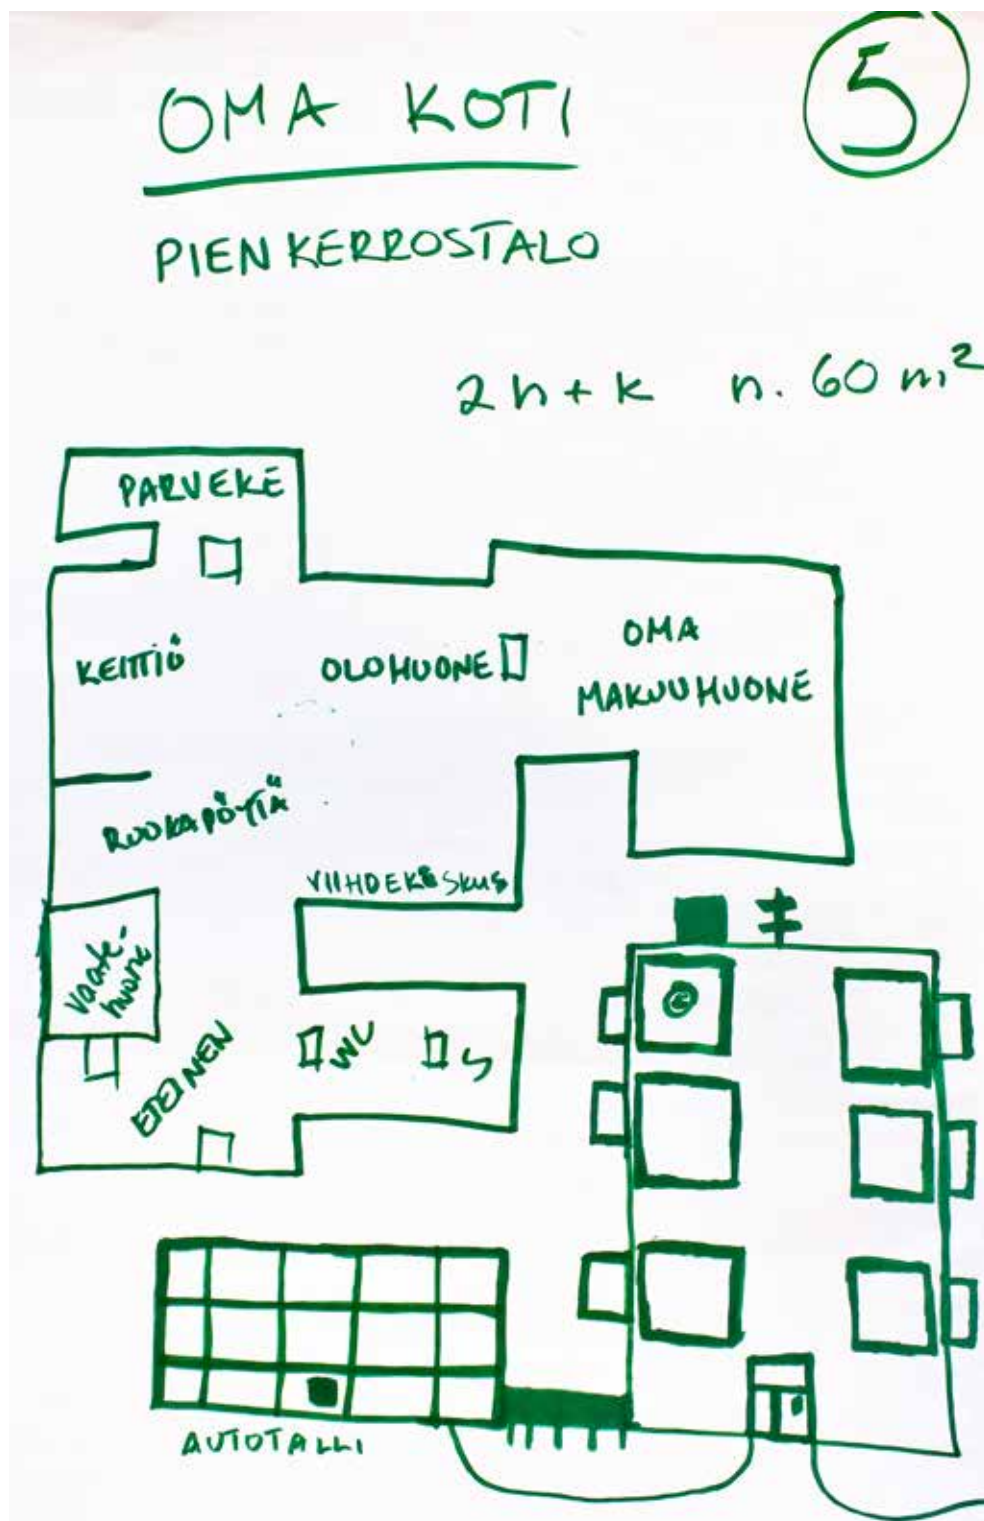 5
OMA KOTI
PIENKERROSTALO
2h+k n. 60 m²
PARVEKE
KEITTIÖ
OLOHUONE
OMA
MAKUUHUONE
RUOKAPÖYTÄ
VIIHDEKESKUS
Vaate-
huone
ETEINEN
WC
S
AUTOTALLI